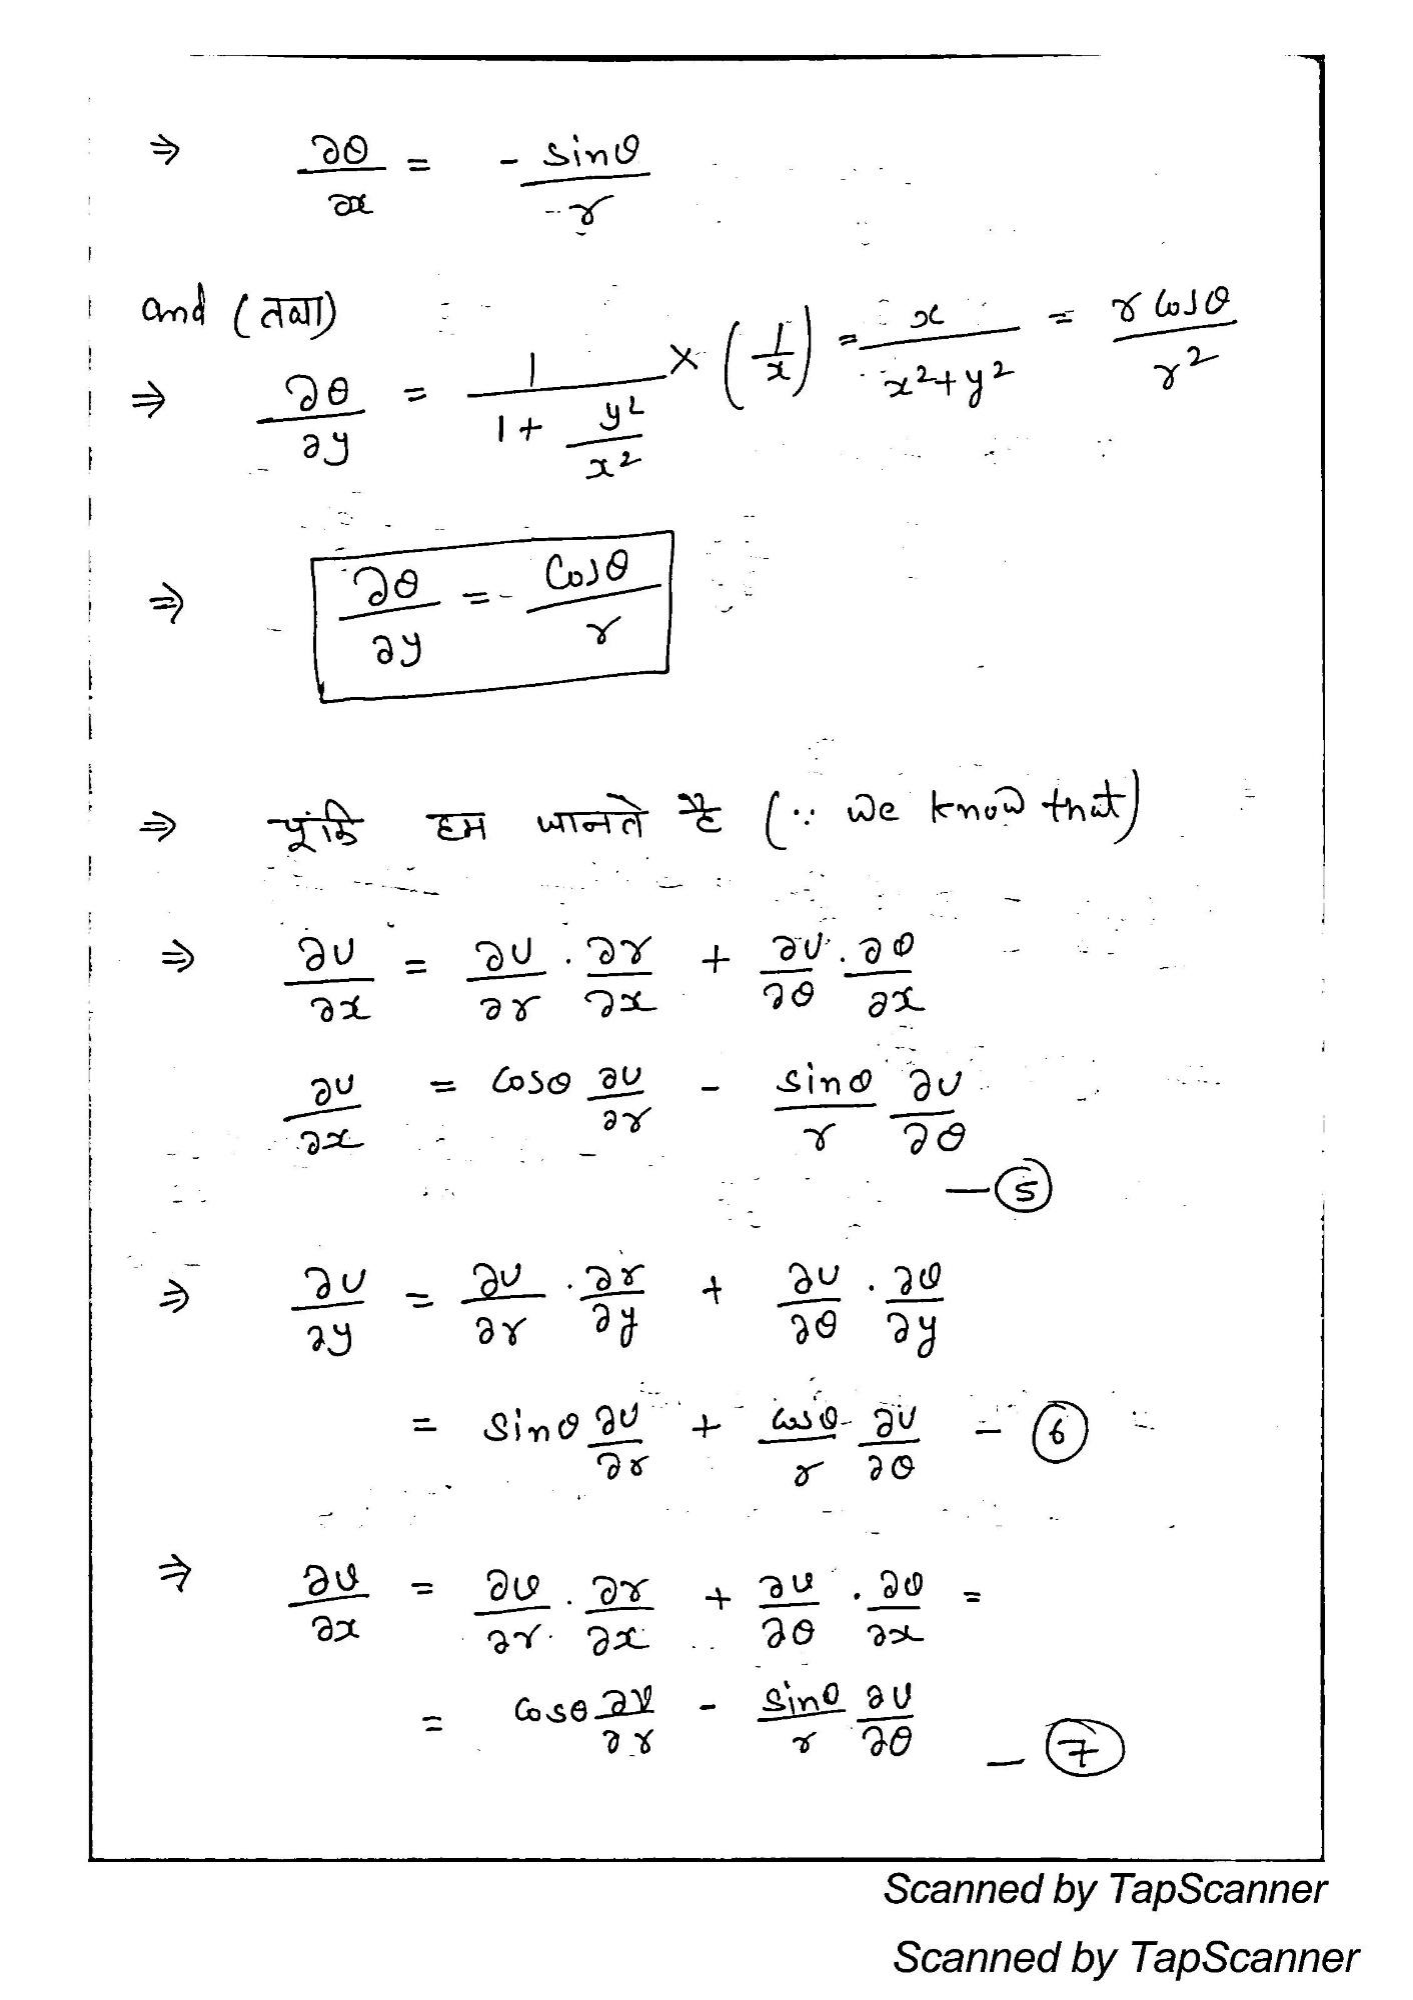 ⇒ ∂θ/∂x = - sinθ/r
and (तथा)
⇒ ∂θ/∂y = 1/(1 + y²/x²) × (1/x) = x/(x²+y²) = r cosθ/r²
⇒ ∂θ/∂y = cosθ/r
⇒ चूंकि हम जानते है (∵ we know that)
⇒ ∂u/∂x = ∂u/∂r · ∂r/∂x + ∂u/∂θ · ∂θ/∂x
∂u/∂x = cosθ ∂u/∂r - sinθ/r ∂u/∂θ
— ⑤
⇒ ∂u/∂y = ∂u/∂r · ∂r/∂y + ∂u/∂θ · ∂θ/∂y
= sinθ ∂u/∂r + cosθ/r ∂u/∂θ — ⑥
⇒ ∂v/∂x = ∂v/∂r · ∂r/∂x + ∂v/∂θ · ∂θ/∂x =
= cosθ ∂v/∂r - sinθ/r ∂v/∂θ
— ⑦
Scanned by TapScanner
Scanned by TapScanner